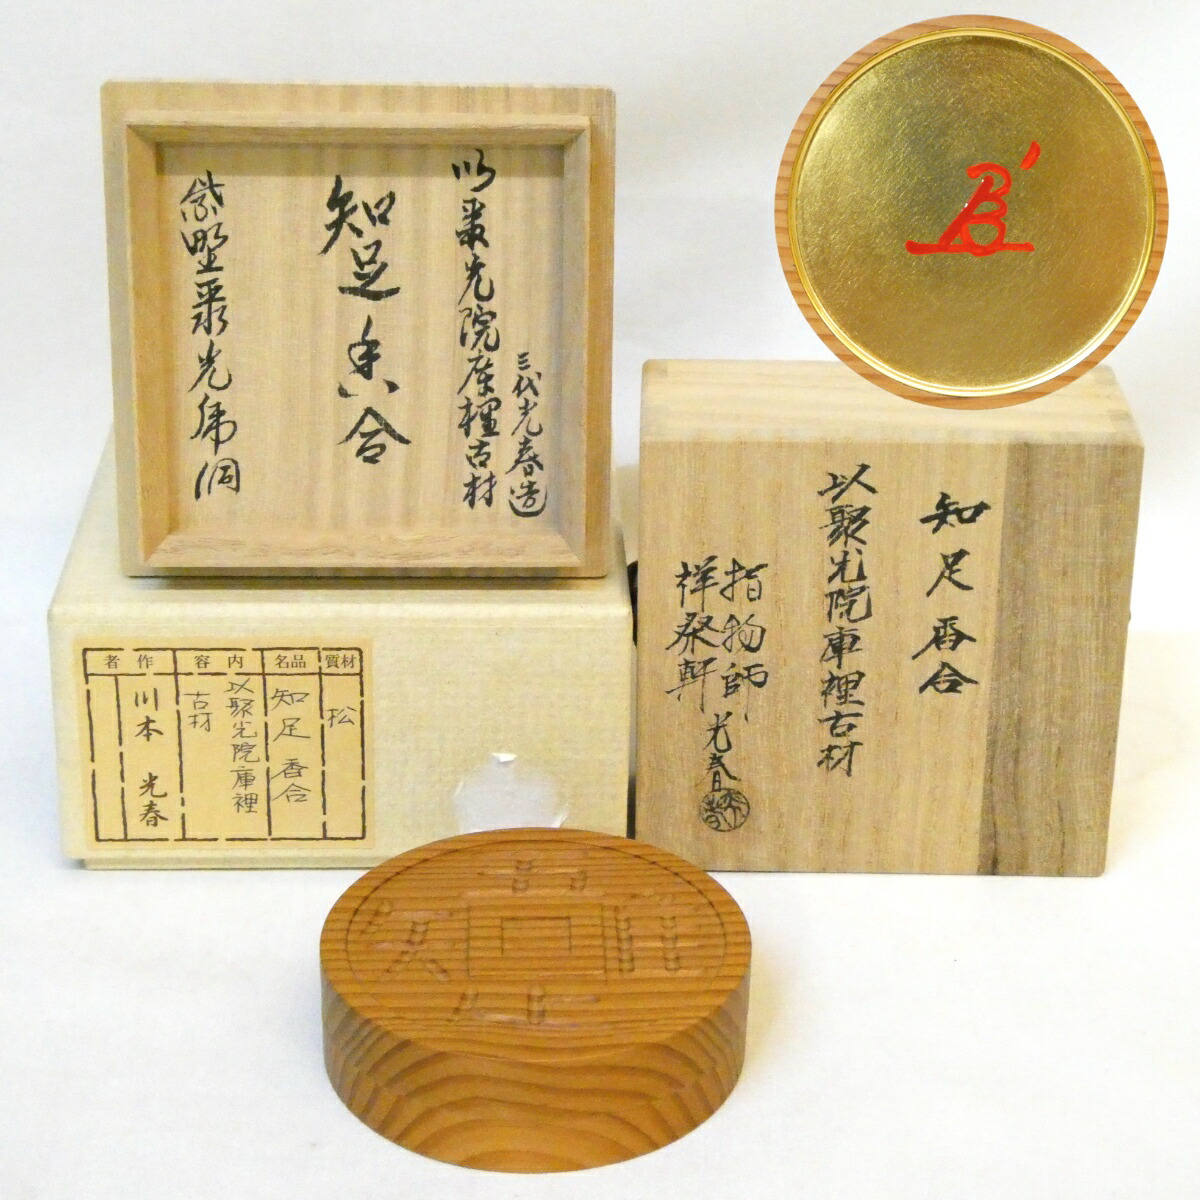 以聚光院庫裡古材
三代光春造
知足香合
紫野聚光
知足香合
以聚光院庫裡古材
指物師
祥發軒
光春
材質
松
品名
知足 香合
内容
以聚光院庫裡
古材
作者
川本 光春